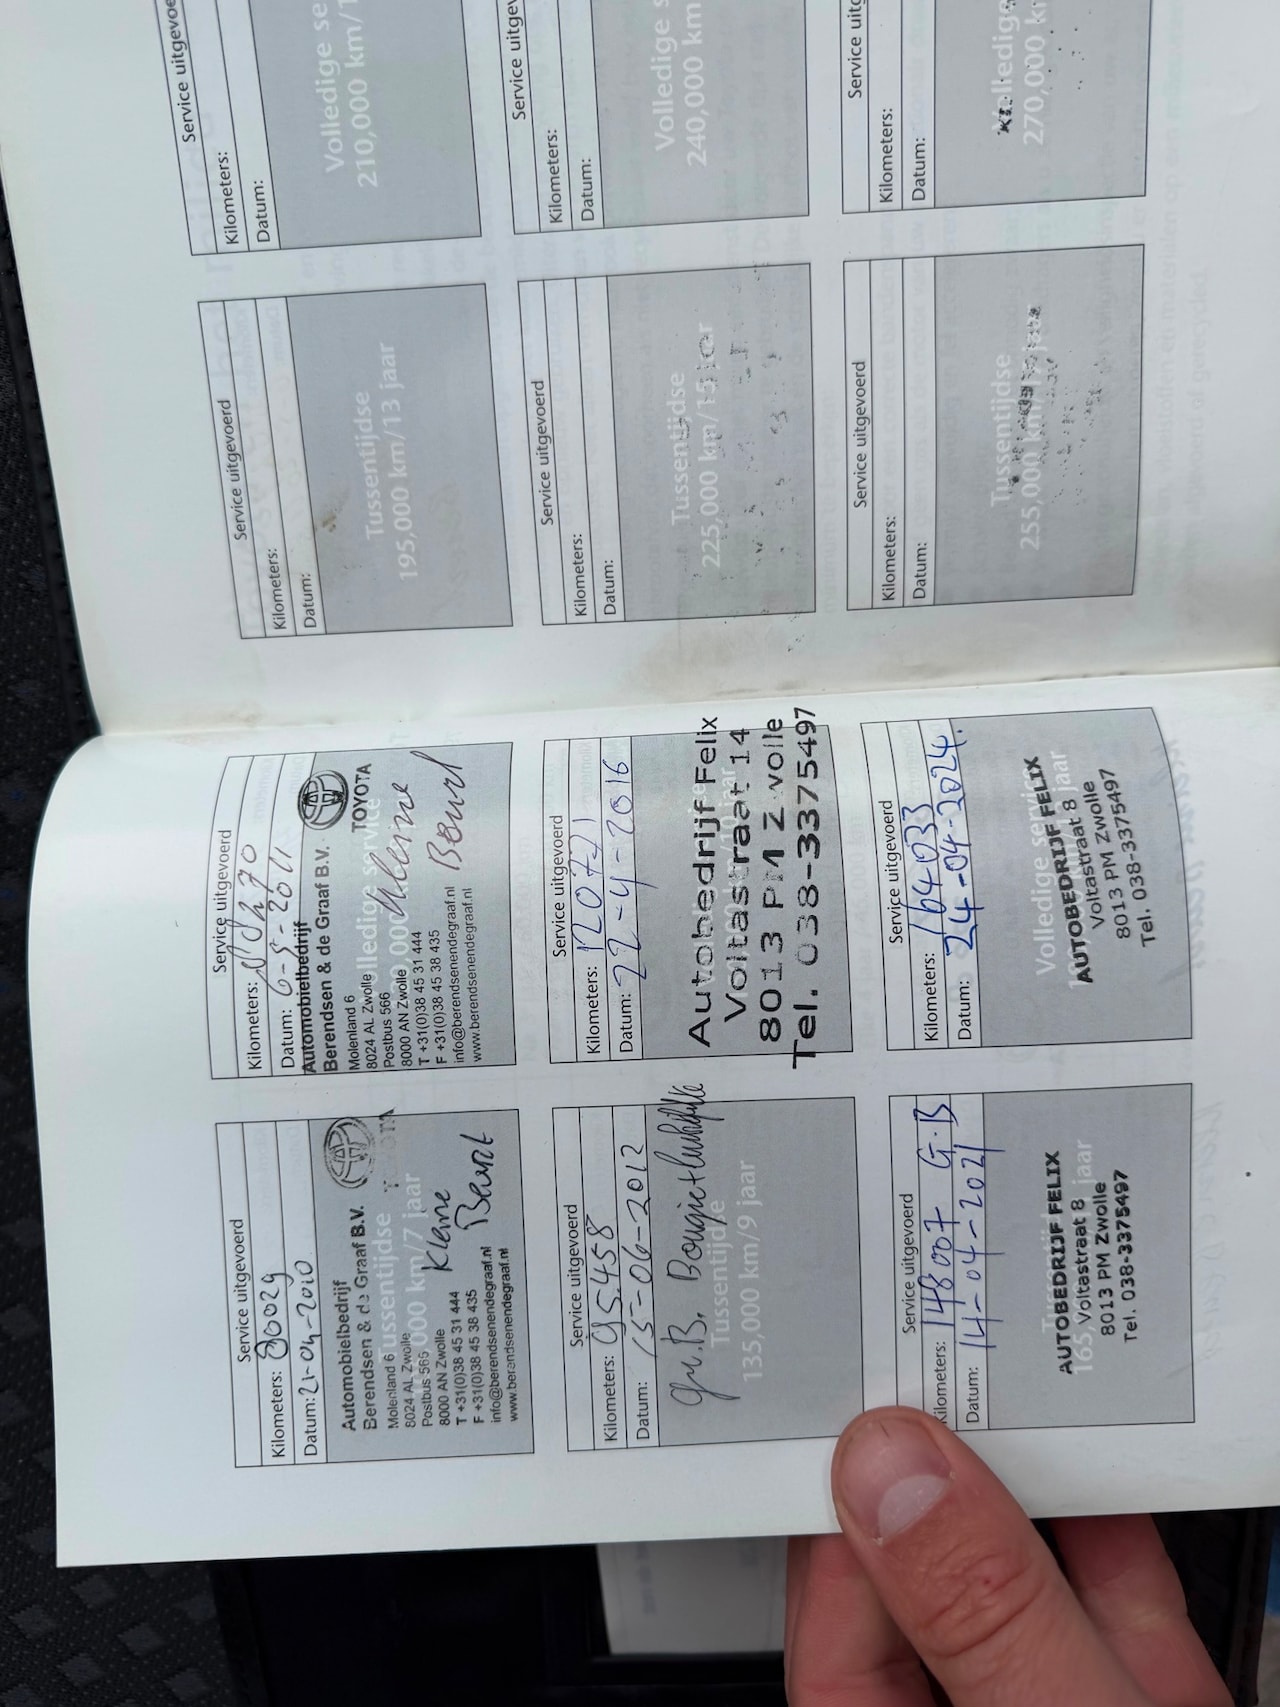 Service uitgevoerd
Kilometers: 80029
Datum: 21-04-2010
Automobielbedrijf
Berendsen & de Graaf B.V.
Molenland 6
8024 AL Zwolle
Postbus 566
8000 AN Zwolle
T +31(0)38 45 31 444
F +31(0)38 45 38 435
info@berendsenendegraaf.nl
www.berendsenendegraaf.nl
Tussentijdse
000 km/7 jaar
Kleine
Beurt
Service uitgevoerd
Kilometers:
Datum: 6-5-2011
Automobielbedrijf
Berendsen & de Graaf B.V.
TOYOTA
Molenland 6
8024 AL Zwolle
Postbus 566
8000 AN Zwolle
T +31(0)38 45 31 444
F +31(0)38 45 38 435
info@berendsenendegraaf.nl
www.berendsenendegraaf.nl
Volledige service
Kleine
Beurt
Service uitgevoerd
Kilometers: 95.458
Datum: 15-06-2012
gr.B. Bougie+luchtfilter
Tussentijdse
135,000 km/9 jaar
Service uitgevoerd
Kilometers: 120721
Datum: 22-4-2016
Autobedrijf Felix
Voltastraat 14
8013 PM Zwolle
Tel. 038-3375497
Service uitgevoerd
Kilometers: 148007 G.B
Datum: 14-04-2021
AUTOBEDRIJF FELIX
Voltastraat 8
8013 PM Zwolle
Tel. 038-3375497
165, jaar
Service uitgevoerd
Kilometers: 164033
Datum: 24-04-2024.
Volledige service
jaar
AUTOBEDRIJF FELIX
Voltastraat 8
8013 PM Zwolle
Tel. 038-3375497
Service uitgevoerd
Kilometers:
Datum:
Tussentijdse
195,000 km/13 jaar
Service uitgevoerd
Kilometers:
Datum:
Volledige se
210,000 km/1
Service uitgevoerd
Kilometers:
Datum:
Tussentijdse
225,000 km/15 jaar
Service uitgev
Kilometers:
Datum:
Volledige s
240,000 km
Service uitgevoerd
Kilometers:
Datum:
Tussentijdse
255,000 km/17 jaar
Service uitg
Kilometers:
Datum:
Volledige
270,000 k